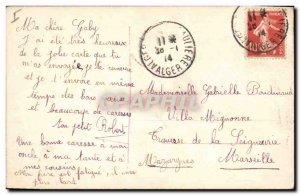 Ma chère Gaby
j'ai été très heureux
de la jolie carte que tu
m'as envoyée je te remercie
et je t'envoie en même
temps des bons baisers
et beaucoup de caresses
ton petit Robert
Une bonne caresse à mon
oncle à ma tante et à
mes cousins.
Mon père est fatigué, il
plus tard
11
30 - 1
14
ALGER
Mademoiselle Gabrielle
Villa Mignonne
Traverse de la Seigneurie
Mazargues
Marseille